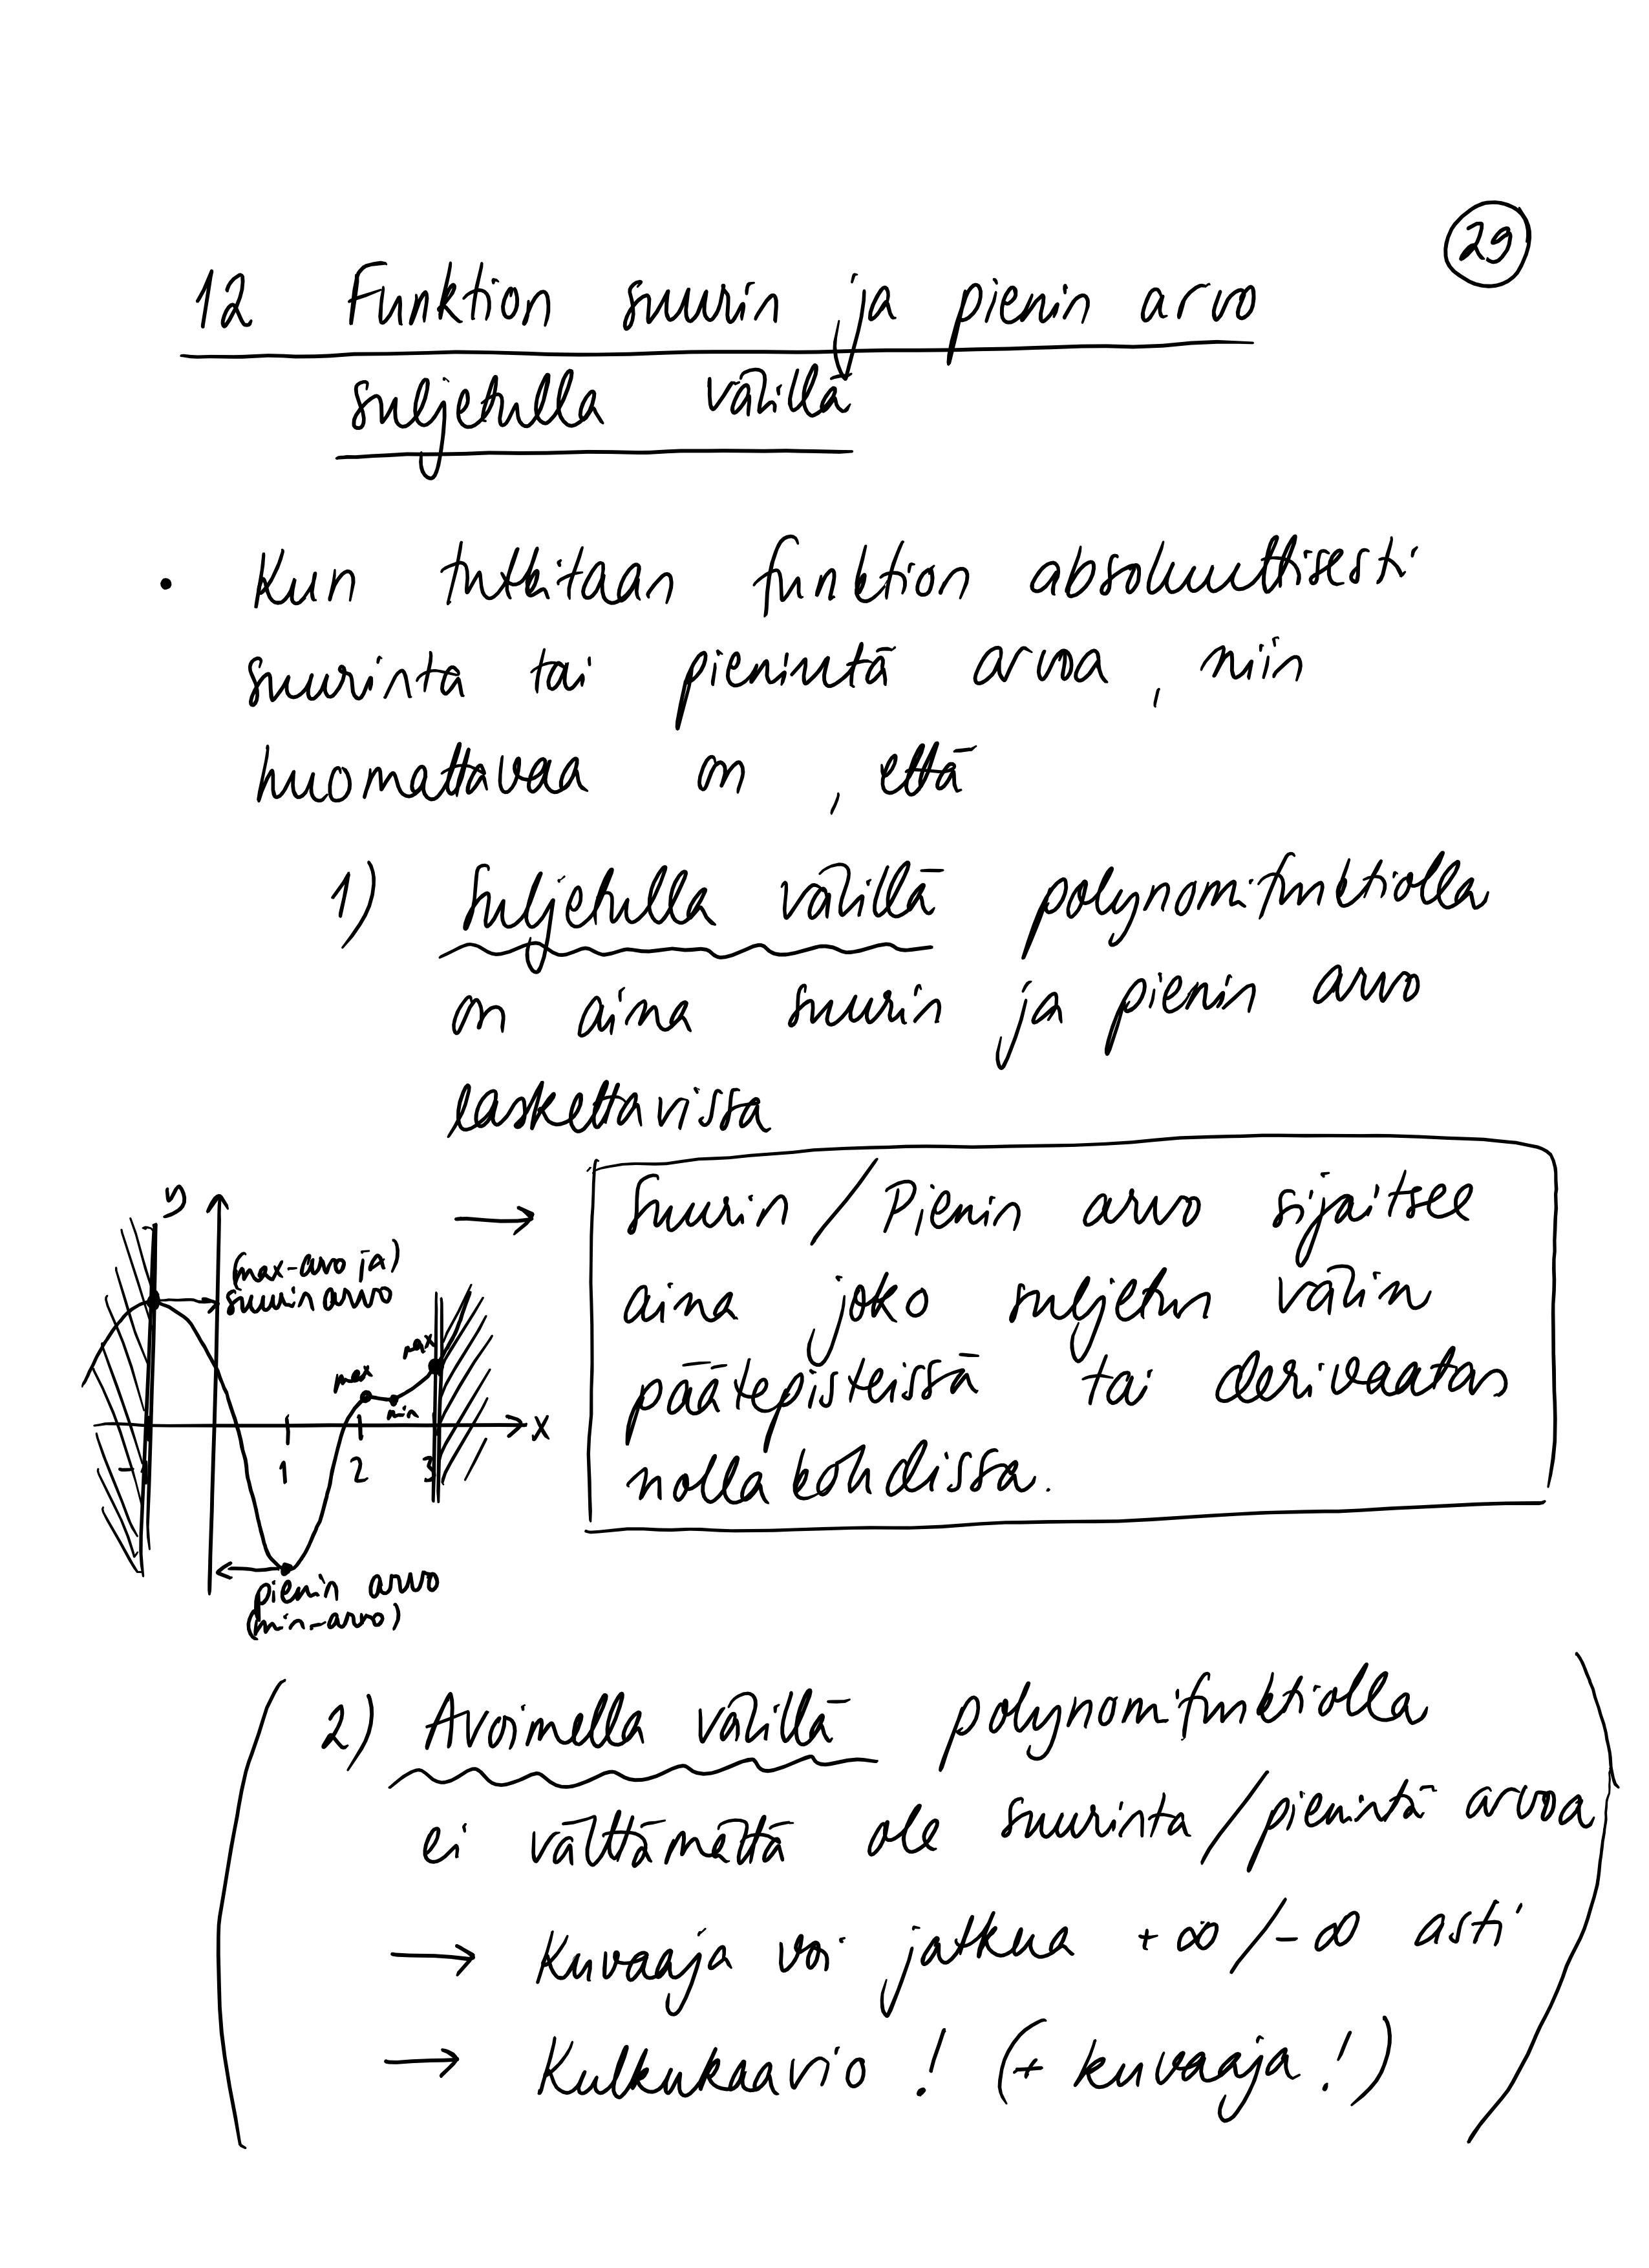 29
12 Funktion suurin ja pienin arvo
suljetulla välillä
• Kun tutkitaan funktion absoluuttisesti
suurinta tai pienintä arvoa, niin
huomattavaa on, että
1) Suljetulla välillä polynomifunktiolla
on aina suurin ja pienin arvo
laskettavissa
→ Suurin / Pienin arvo sijaitsee
aina joko suljetun välin
päätepisteissä tai derivaatan
nollakohdissa.
y
(max-arvo ja)
suurin arvo
max
max
min
x
-1 1 2 3
pienin arvo
(min-arvo)
2) Avoimella välillä polynomifunktiolla
ei välttämättä ole suurinta/pienintä arvoa
→ Kuvaaja voi jatkua +∞/-∞ asti
→ Kulkukaavio! (+ kuvaaja!)